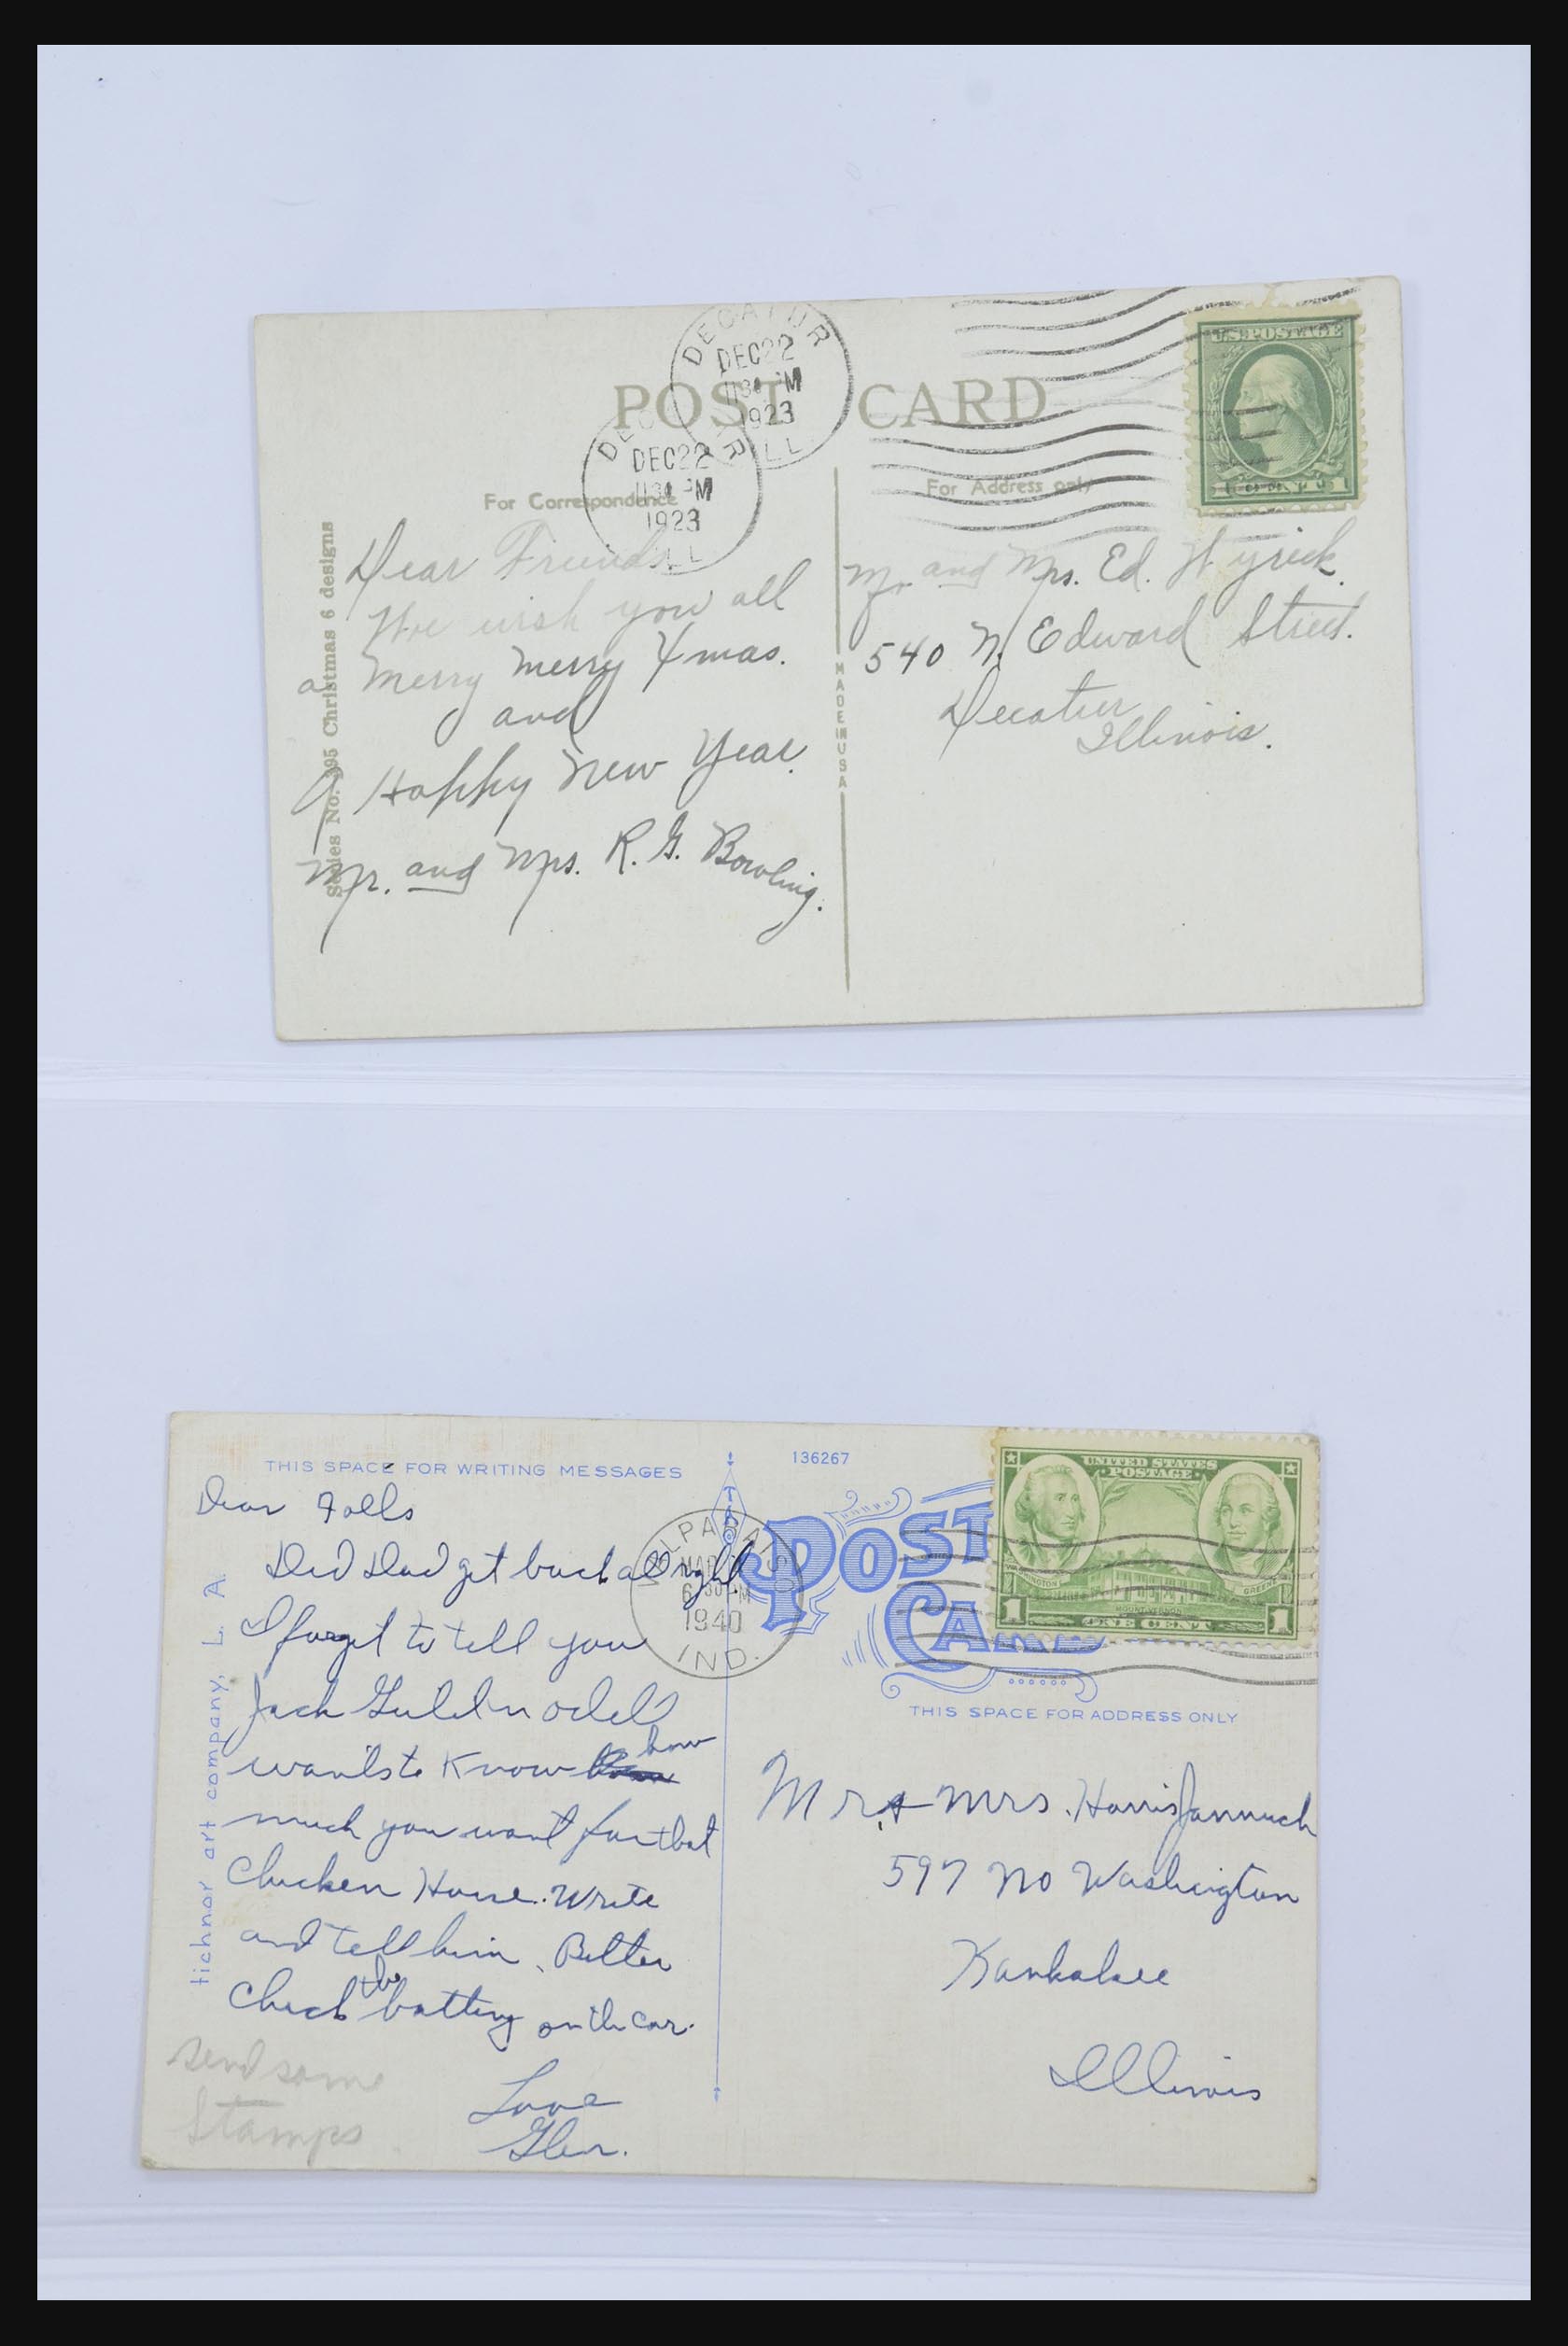 DECATUR
DEC 22
1130 PM
1923
ILL.
DEC 22
1130 PM
1923
ILL.
POST CARD
U.S. POSTAGE
1 CENT 1
For Correspondence
For Address only
Series No. 395 Christmas 6 designs
Dear Friends.
We wish you all
a merry merry Xmas.
and
A Happy New Year.
Mr. and Mrs. R. G. Bowling.
MADE IN USA
Mr. and Mrs. Ed. Wyrick.
540 N. Edward Street.
Decatur
Illinois.
THIS SPACE FOR WRITING MESSAGES
136267
UNITED STATES
POSTAGE
WASHINGTON
GREENE
MOUNT VERNON
1 ONE CENT 1
POST
CARD
VALPARAISO
MAR
6 30 PM
1940
IND.
THIS SPACE FOR ADDRESS ONLY
tichnor art company, L. A.
Dear Folks
Did Dad get back all right
I forgot to tell you
Jack
wants to know how
much you want for that
Chicken House. Write
and tell him. Better
Check the battery on the car.
Love
Glen.
send some
stamps
Mr. & Mrs. Harris Jannuch
597 No Washington
Kankakee
Illinois